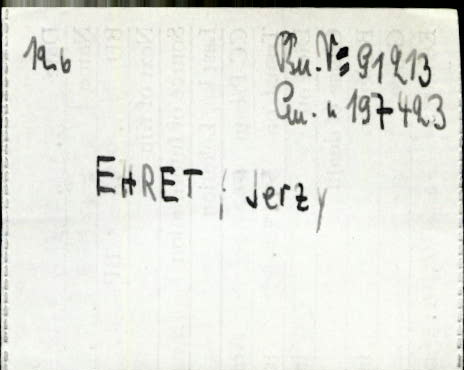 12.6
Bu. Nº 91213
Au. " 197423
EHRET ; Jerzy